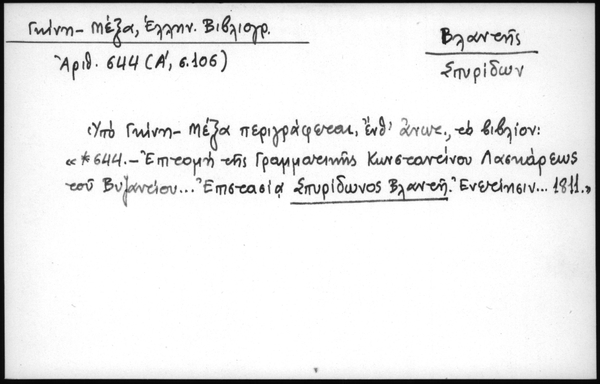 Γκίνη - Μέξα, Ἑλλην. Βιβλιογρ.
Ἀριθ. 644 (Α', σ. 106)
Βλαντῆς
Σπυρίδων
Ὑπὸ Γκίνη - Μέξα περιγράφεται, ἔνθ' ἄνωτ., τὸ βιβλίον:
«*644.- Ἐπιτομὴ τῆς Γραμματικῆς Κωνσταντίνου Λασκάρεως
τοῦ Βυζαντίου... Ἐπιστασίᾳ Σπυρίδωνος Βλαντῆ. Ἐνετίησιν... 1811.»